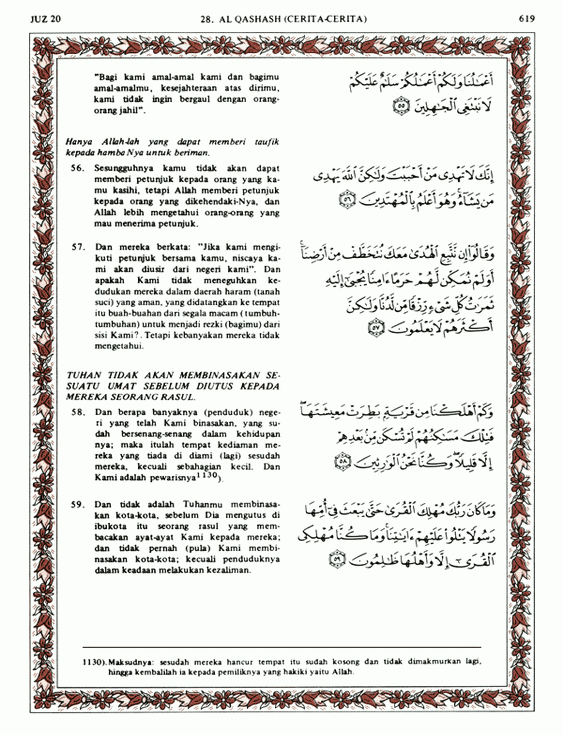 JUZ 20 28. AL QASHASH (CERITA-CERITA) 619
"Bagi kami amal-amal kami dan bagimu
amal-amalmu, kesejahteraan atas dirimu,
kami tidak ingin bergaul dengan orang-
orang jahil".
أَعْمَٰلُنَا وَلَكُمْ أَعْمَٰلُكُمْ سَلَٰمٌ عَلَيْكُمْ
لَا نَبْتَغِى ٱلْجَٰهِلِينَ ٥٥
Hanya Allah-lah yang dapat memberi taufik
kepada hamba Nya untuk beriman.
56. Sesungguhnya kamu tidak akan dapat
memberi petunjuk kepada orang yang ka-
mu kasihi, tetapi Allah memberi petunjuk
kepada orang yang dikehendaki-Nya, dan
Allah lebih mengetahui orang-orang yang
mau menerima petunjuk.
إِنَّكَ لَا تَهْدِى مَنْ أَحْبَبْتَ وَلَٰكِنَّ ٱللَّهَ يَهْدِى
مَن يَشَآءُ وَهُوَ أَعْلَمُ بِٱلْمُهْتَدِينَ ٥٦
57. Dan mereka berkata: "Jika kami mengi-
kuti petunjuk bersama kamu, niscaya ka-
mi akan diusir dari negeri kami". Dan
apakah Kami tidak meneguhkan ke-
dudukan mereka dalam daerah haram (tanah
suci) yang aman, yang didatangkan ke tempat
itu buah-buahan dari segala macam (tumbuh-
tumbuhan) untuk menjadi rezki (bagimu) dari
sisi Kami?. Tetapi kebanyakan mereka tidak
mengetahui.
وَقَالُوٓا۟ إِن نَّتَّبِعِ ٱلْهُدَىٰ مَعَكَ نُتَخَطَّفْ مِنْ أَرْضِنَآ
أَوَلَمْ نُمَكِّن لَّهُمْ حَرَمًا ءَامِنًا يُجْبَىٰٓ إِلَيْهِ
ثَمَرَٰتُ كُلِّ شَىْءٍ رِّزْقًا مِّن لَّدُنَّا وَلَٰكِنَّ
أَكْثَرَهُمْ لَا يَعْلَمُونَ ٥٧
TUHAN TIDAK AKAN MEMBINASAKAN SE-
SUATU UMAT SEBELUM DIUTUS KEPADA
MEREKA SEORANG RASUL.
58. Dan berapa banyaknya (penduduk) nege-
ri yang telah Kami binasakan, yang su-
dah bersenang-senang dalam kehidupan
nya; maka itulah tempat kediaman me-
reka yang tiada di diami (lagi) sesudah
mereka, kecuali sebahagian kecil. Dan
Kami adalah pewarisnya1130).
وَكَمْ أَهْلَكْنَا مِن قَرْيَةٍۭ بَطِرَتْ مَعِيشَتَهَا
فَتِلْكَ مَسَٰكِنُهُمْ لَمْ تُسْكَن مِّنۢ بَعْدِهِمْ
إِلَّا قَلِيلًا وَكُنَّا نَحْنُ ٱلْوَٰرِثِينَ ٥٨
59. Dan tidak adalah Tuhanmu membinasa-
kan kota-kota, sebelum Dia mengutus di
ibukota itu seorang rasul yang mem-
bacakan ayat-ayat Kami kepada mereka;
dan tidak pernah (pula) Kami membi-
nasakan kota-kota; kecuali penduduknya
dalam keadaan melakukan kezaliman.
وَمَا كَانَ رَبُّكَ مُهْلِكَ ٱلْقُرَىٰ حَتَّىٰ يَبْعَثَ فِىٓ أُمِّهَا
رَسُولًا يَتْلُوا۟ عَلَيْهِمْ ءَايَٰتِنَا وَمَا كُنَّا مُهْلِكِى
ٱلْقُرَىٰٓ إِلَّا وَأَهْلُهَا ظَٰلِمُونَ ٥٩
1130). Maksudnya: sesudah mereka hancur tempat itu sudah kosong dan tidak dimakmurkan lagi,
hingga kembalilah ia kepada pemiliknya yang hakiki yaitu Allah.